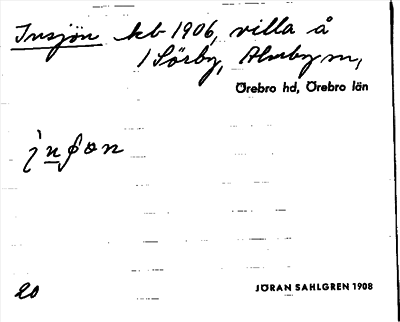 Insjön kb 1906, villa å
1 Sörby, Almby sn,
Örebro hd, Örebro län
20
JÖRAN SAHLGREN 1908